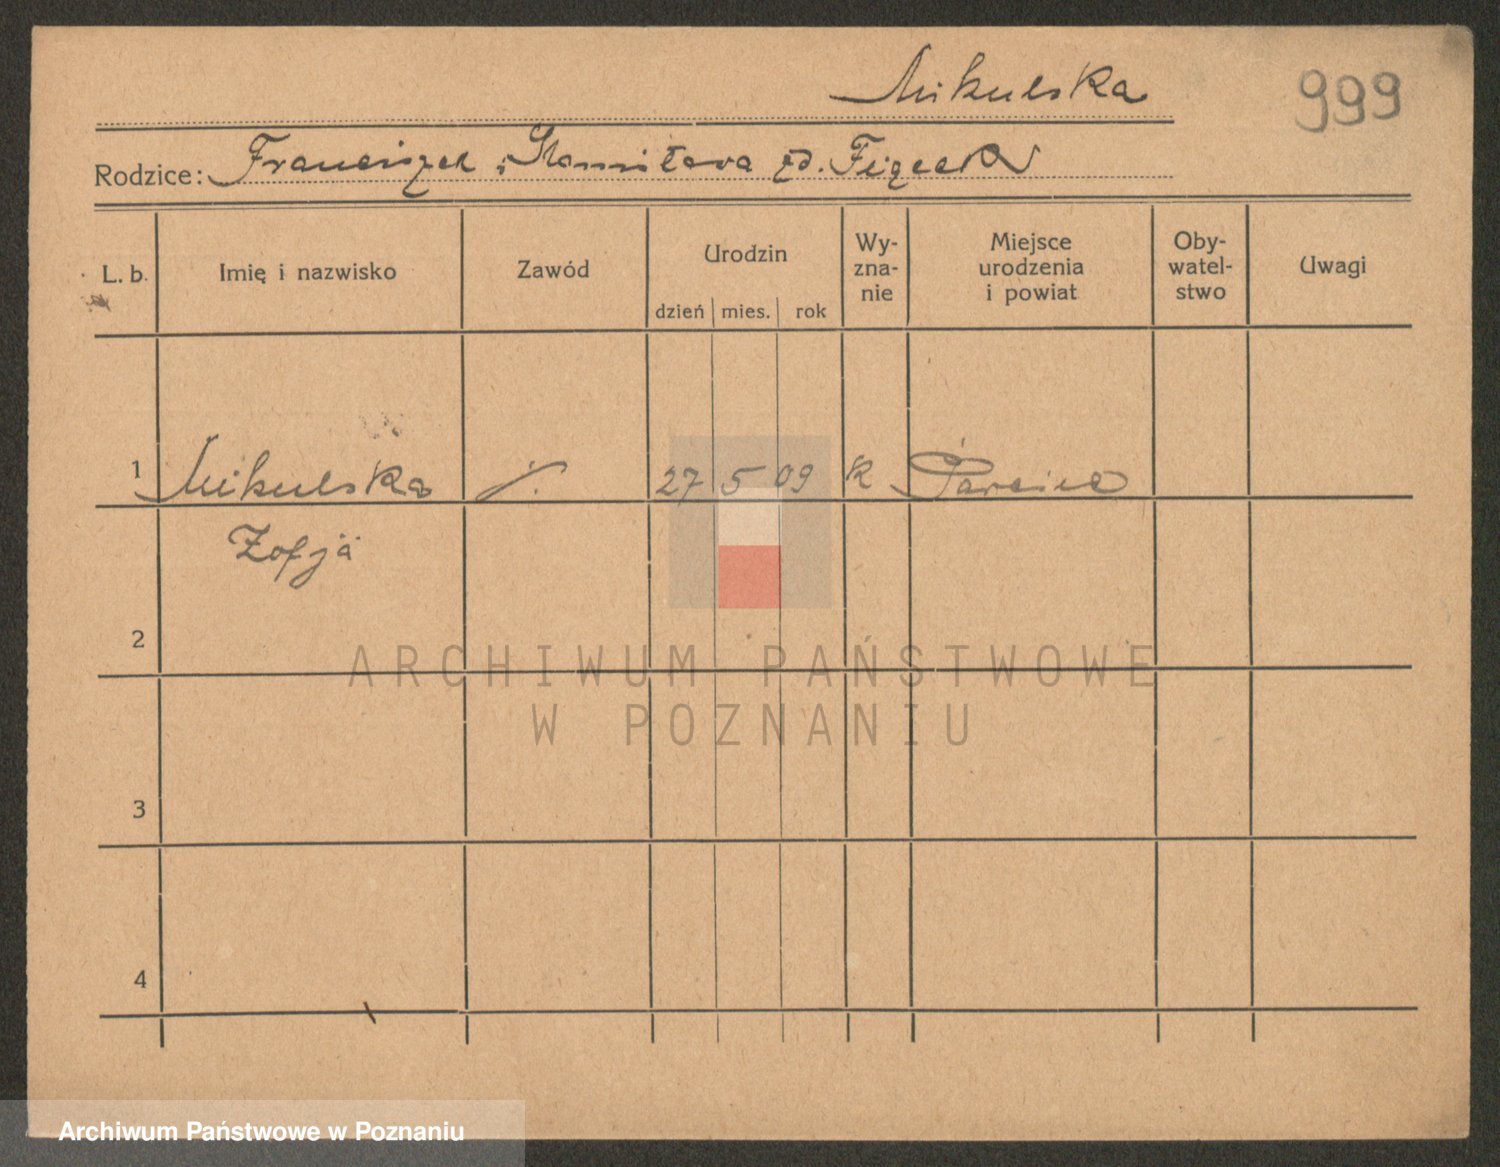 Mikulska
999
Rodzice: Franciszek i Stanisława zd.
L. b. Imię i nazwisko Zawód Urodzin dzień mies. rok Wy-zna-nie Miejsce urodzenia i powiat Oby-watel-stwo Uwagi
1 Mikulska j. 27 5 09 k
Zofja
2
ARCHIWUM PAŃSTWOWE
W POZNANIU
3
4
Archiwum Państwowe w Poznaniu